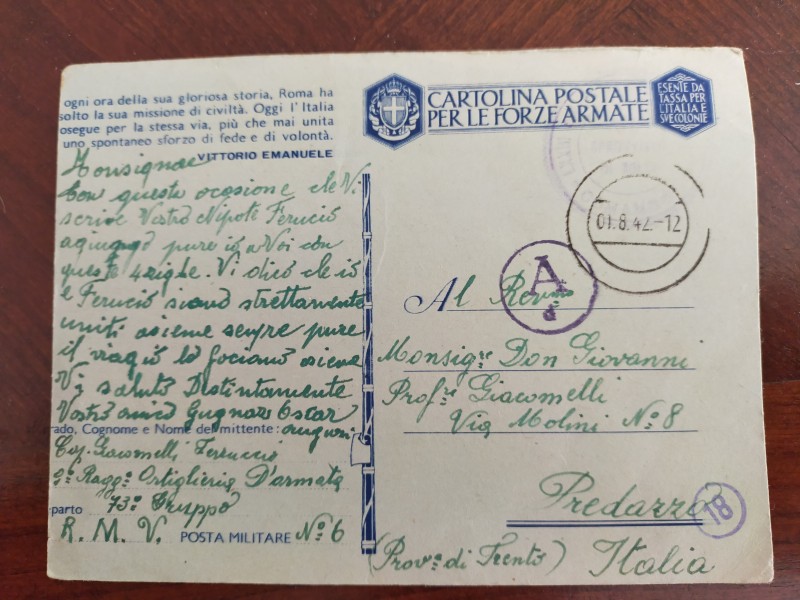 ogni ora della sua gloriosa storia, Roma ha
solto la sua missione di civiltà. Oggi l'Italia
osegue per la stessa via, più che mai unita
uno spontaneo sforzo di fede e di volontà.
VITTORIO EMANUELE
Monsignore
Con questa ocasione che Vi
scrive Vostro Nipote Ferucio
agiungo pure io a Voi con
queste 4 righe. Vi dico che io
e Ferucio siamo strettamente
uniti asieme sempre pure
il viagio lo faciamo asieme
Vi saluto Distintamente
Vostro amico Oscar
rado, Cognome e Nome del mittente:
Cap. Giacomelli Ferruccio
9º Ragg. Artiglieria D'armata
parto 73º Gruppo
R. M. V. POSTA MILITARE Nº 6
CARTOLINA POSTALE
PER LE FORZE ARMATE
ESENTE DA
TASSA PER
L'ITALIA E
SVE COLONIE
01.8.42.-12
A
d
Al Rev.mo
Monsig.re Don Giovanni
Prof.re Giacomelli
Via Molini Nº 8
Predazzo
18
(Prov.a di Trento) Italia